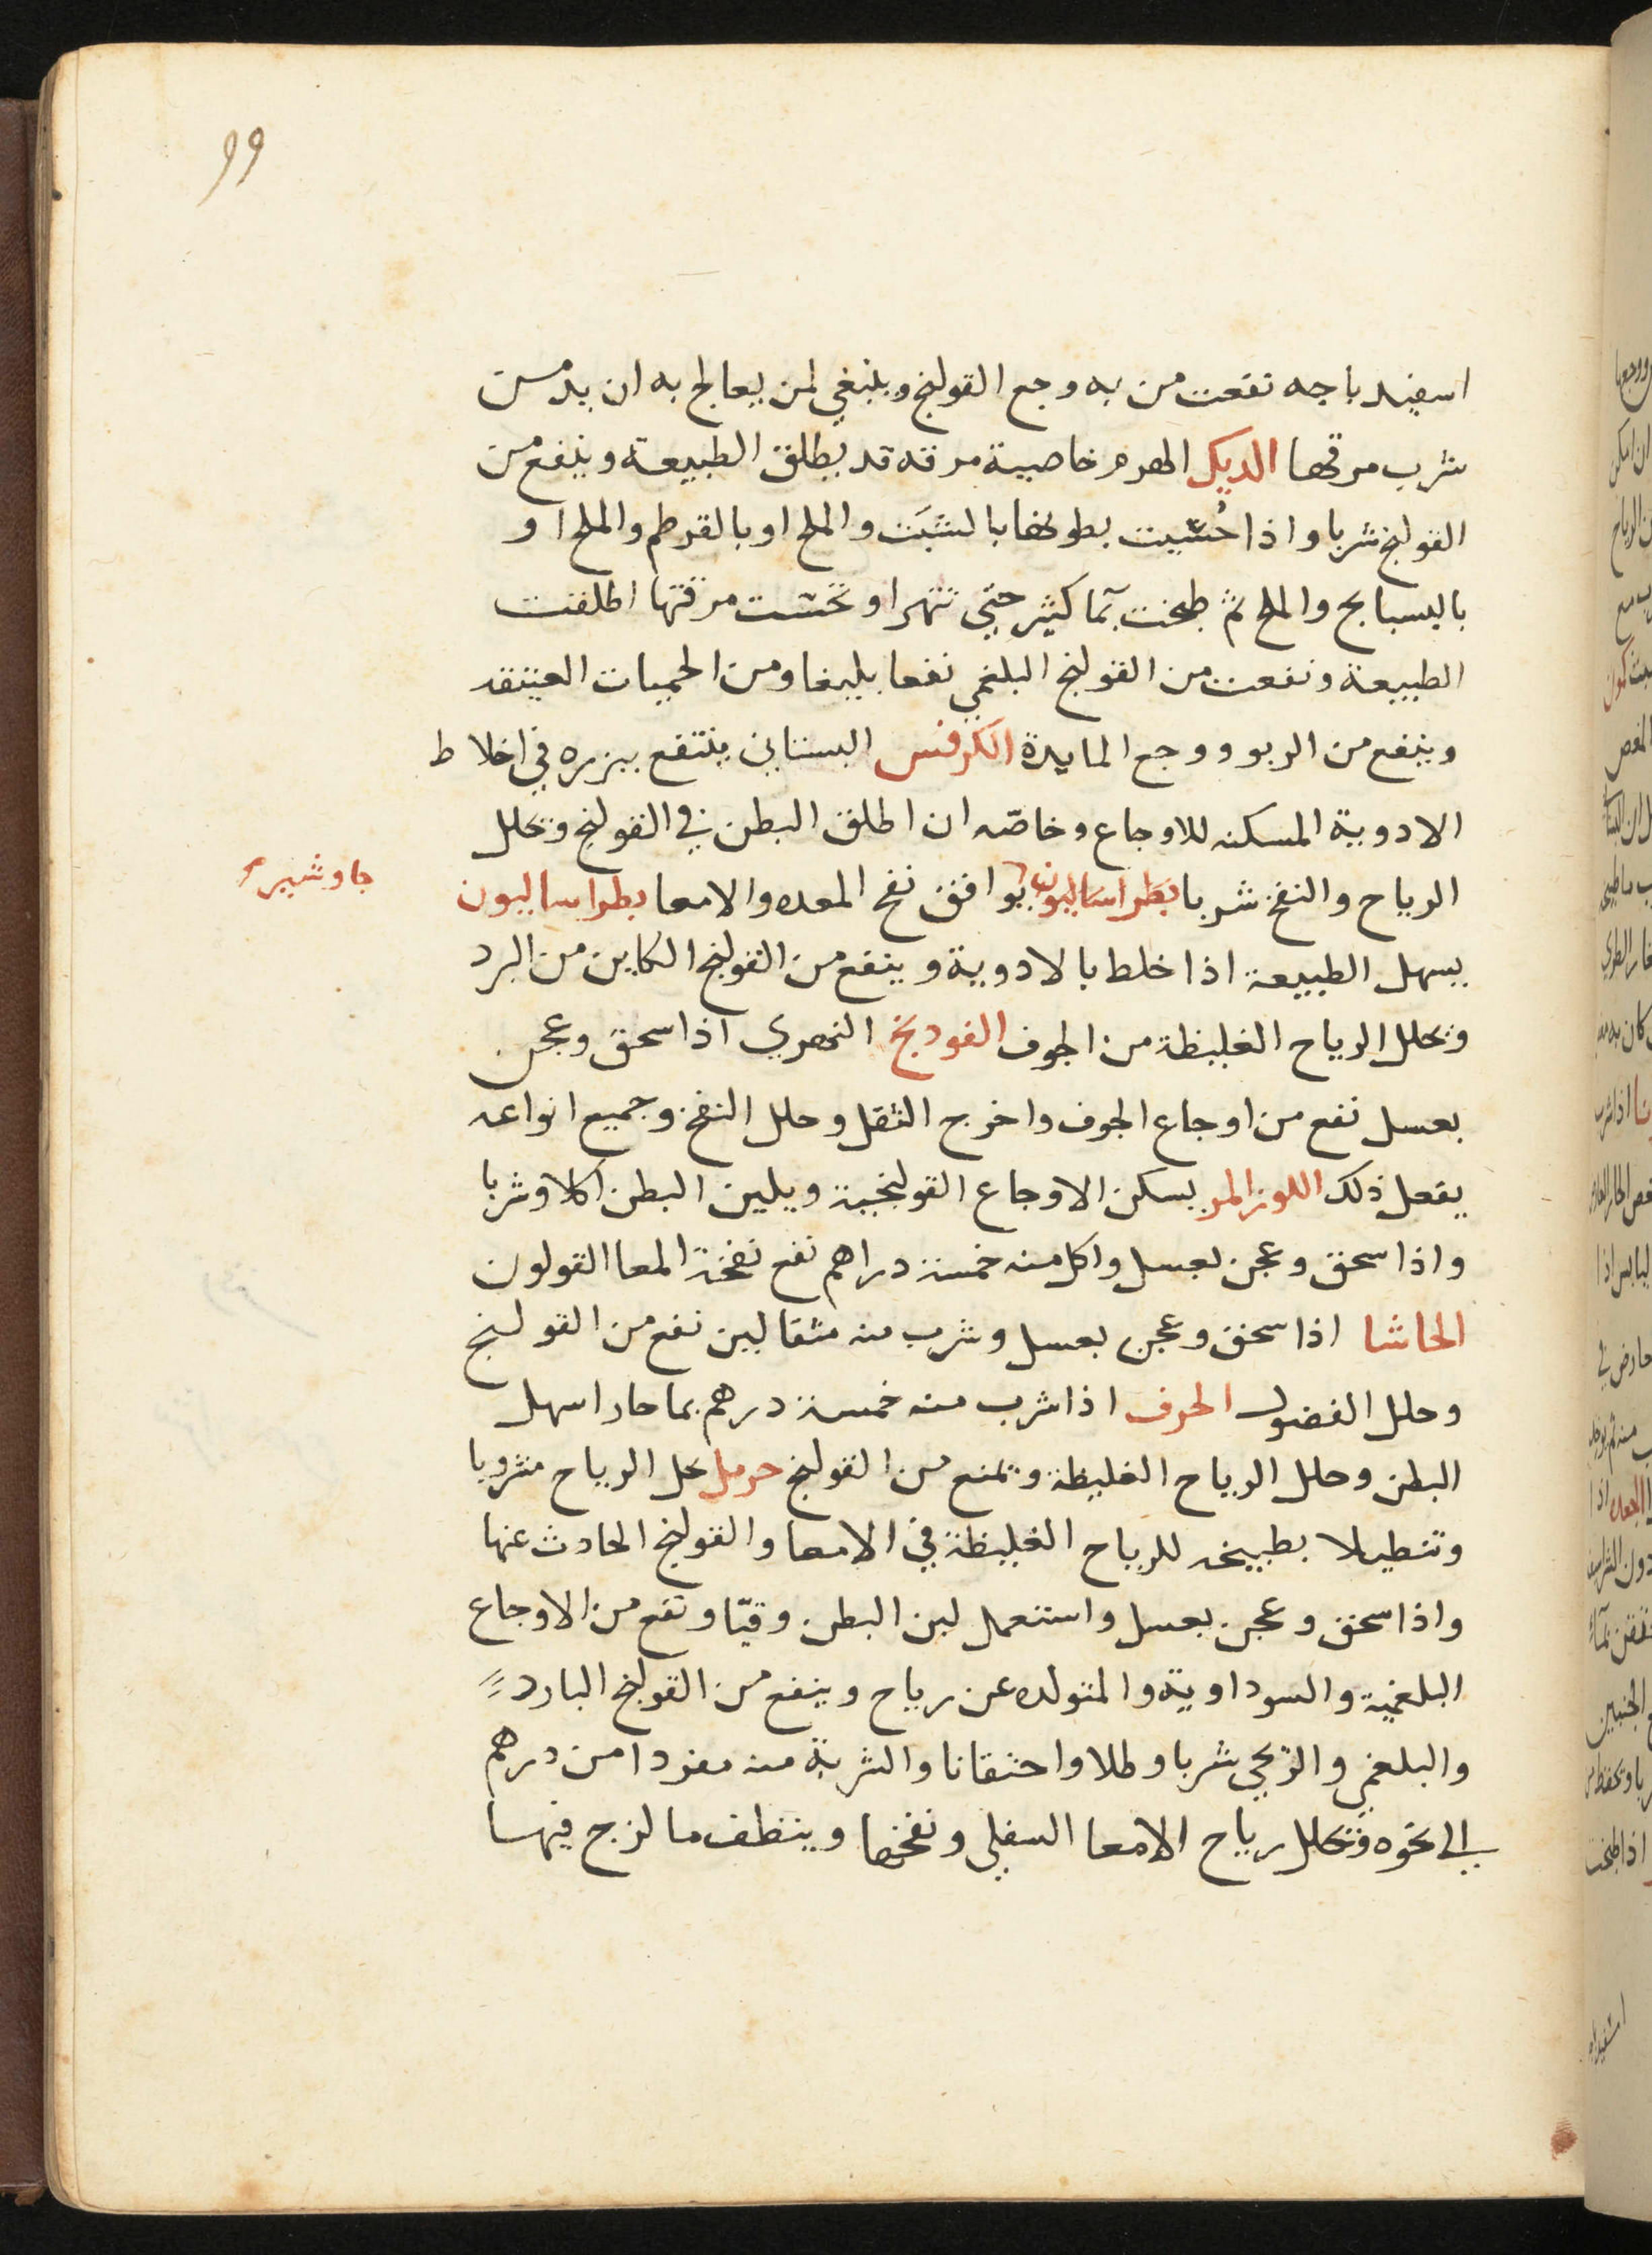 99
اسفيدباجه نفعت من به وجع القولنج وينبغي لمن يعالج به ان يدمن
شرب مرقها الديك الهرم خاصية مرقه قد يطلق الطبيعة وينفع من
القولنج شربا واذا حُشيت بطونها بالشبَت والملح او بالقرطم والملح او
بالبسبايج والملح ثم طبخت بمآ كثير حتي تتهرا وتحسّت مرقتها اطلقت
الطبيعة ونفعت من القولنج البلغمي نفعا بليغا ومن الحميات العتيقه
وينفع من الربو ووجع المايدة الكرفس البستاني ينتفع ببزره في اخلاط
الادوية المسكنه للاوجاع وخاصّه ان اطلق البطن في القولنج وتحلل
الرياح والنفخ شربا بطراساليون يوافق نفخ المعده والامعا بطراساليون
جاوشير
يسهل الطبيعة اذا خلط بالادوية وينفع من القولنج الكاين من البرد
وتحلل الرياح الغليظة من الجوف الفودنج النهري اذا سحق وعجن
بعسل نفع من اوجاع الجوف واخرج الثقل وحلل النفخ وجميع انواعه
يفعل ذلك اللوز المر يسكن الاوجاع القولنجية ويلين البطن اكلا وشربا
واذا سحق وعجن بعسل واكل منه خمسة دراهم نفع نفخة المعا القولون
الحاشا اذا سحق وعجن بعسل وشرب منه مثقالين نفع من القولنج
وحلل الفضول الحرف اذا شرب منه خمسة درهم بما حار اسهل
البطن وحلل الرياح الغليظة ويمنع من القولنج حرمل يحل الرياح مشروبا
وتنطيلا بطبيخه للرياح الغليظة في الامعا والقولنج الحادث عنها
واذا سحق وعجن بعسل واستعمل لين البطن وقيّا ونفع من الاوجاع
البلغمية والسوداوية والمتولده عن رياح وينفع من القولنج البارد
والبلغمي والريحي شربا وطلا واحتقانا والشربة منه مفردا من درهم
الي نحوه وتحلل رياح الامعا السفلي ونفخها وينظف ما لزج فيها